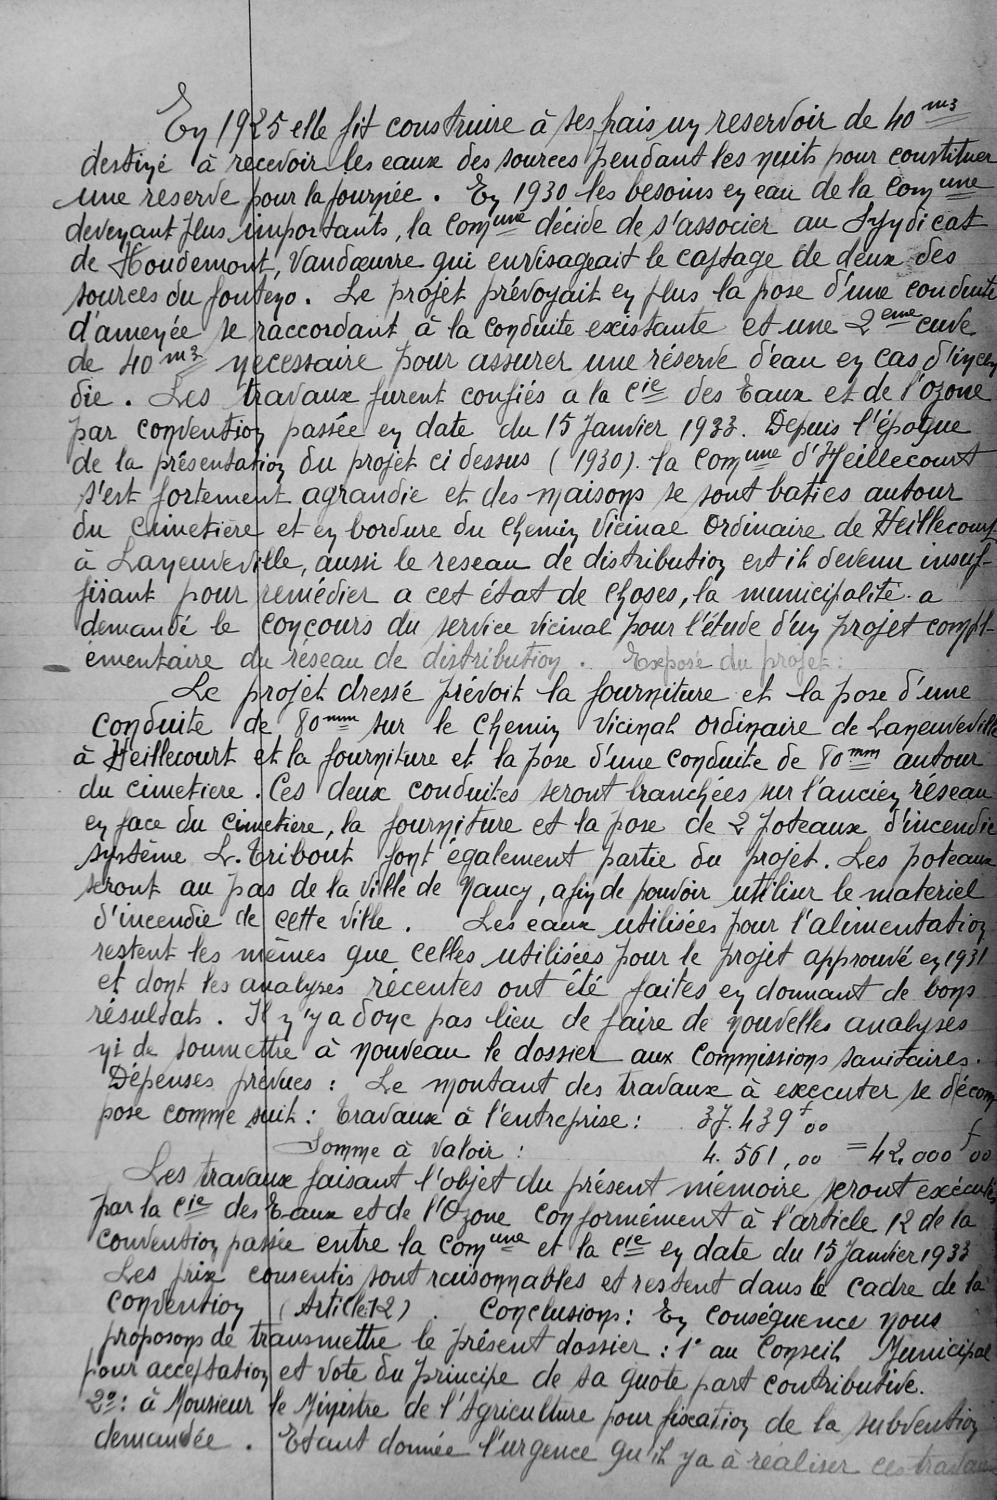 En 1925 elle fit construire à ses frais un reservoir de 40 m3
destiné à recevoir les eaux des sources pendant les nuits pour constituer
une reserve pour la journée. En 1930 les besoins en eau de la Commune
devenant plus importants, la Commune décide de s'associer au Syndicat
de Houdemont, Vandœuvre qui envisageait le captage de deux des
sources du fonteno. Le projet prévoyait en plus la pose d'une conduite
d'amenée se raccordant à la conduite existante et une 2eme cuve
de 40 m3 necessaire pour assurer une réserve d'eau en cas d'incen
die. Les travaux furent confiés a la Cie des Eaux et de l'Ozone
par convention passée en date du 15 Janvier 1933. Depuis l'époque
de la présentation du projet ci dessus (1930). la Commune d'Heillecourt
s'est fortement agrandie et des maisons se sont baties autour
du cimetière et en bordure du Chemin Vicinal Ordinaire de Heillecourt
à Laneuveville, aussi le reseau de distribution est il devenu insuf-
fisant pour remédier a cet état de choses, la municipalité a
demandé le concours du service vicinal pour l'étude d'un projet compl-
ementaire du réseau de distribution. Exposé du projet:
Le projet dressé prévoit la fourniture et la pose d'une
conduite de 80 mm sur le Chemin Vicinal ordinaire de Laneuveville
à Heillecourt et la fourniture et la pose d'une conduite de 80 mm autour
du cimetiere. Ces deux conduites seront branchées sur l'ancien réseau
en face du cimetière, la fourniture et la pose de 2 poteaux d'incendie
système L. Tribout font également partie du projet. Les poteaux
seront au pas de la ville de Nancy, afin de pouvoir utiliser le materiel
d'incendie de cette ville. Les eaux utilisées pour l'alimentation
restent les mêmes que celles utilisées pour le projet approuvé en 1931
et dont les analyses récentes ont été faites en donnant de bons
résultats. Il n'y a donc pas lieu de faire de nouvelles analyses
ni de soumettre à nouveau le dossier aux Commissions sanitaires.
Dépenses prévues: Le montant des travaux à executer se décom
pose comme suit: Travaux à l'entreprise: 37.439 f 00
Somme à valoir: 4.561,00 = 42.000 f 00
Les travaux faisant l'objet du présent mémoire seront exécutés
par la Cie des Eaux et de l'Ozone conformément à l'article 12 de la
convention passée entre la Commune et la Cie en date du 15 Janvier 1933
Les prix consentis sont raisonnables et restent dans le cadre de la
convention (Article 12). Conclusions: En conséquence nous
proposons de transmettre le présent dossier: 1° au Conseil Municipal
pour acceptation et vote du principe de sa quote part contributive.
2°: à Monsieur le Ministre de l'Agriculture pour fixation de la subvention
demandée. Etant donnée l'urgence qu'il y a à réaliser ces travaux